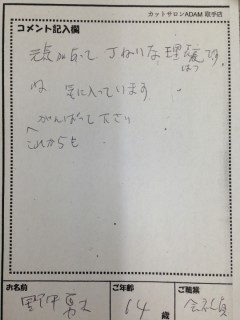 カットサロンADAM 取手店
コメント記入欄
元気があって ていねいな理髪です
はつ
ね 気に入っています
がんばって下さい
これからも
お名前
ご年齢
64 歳
ご職業
会社員